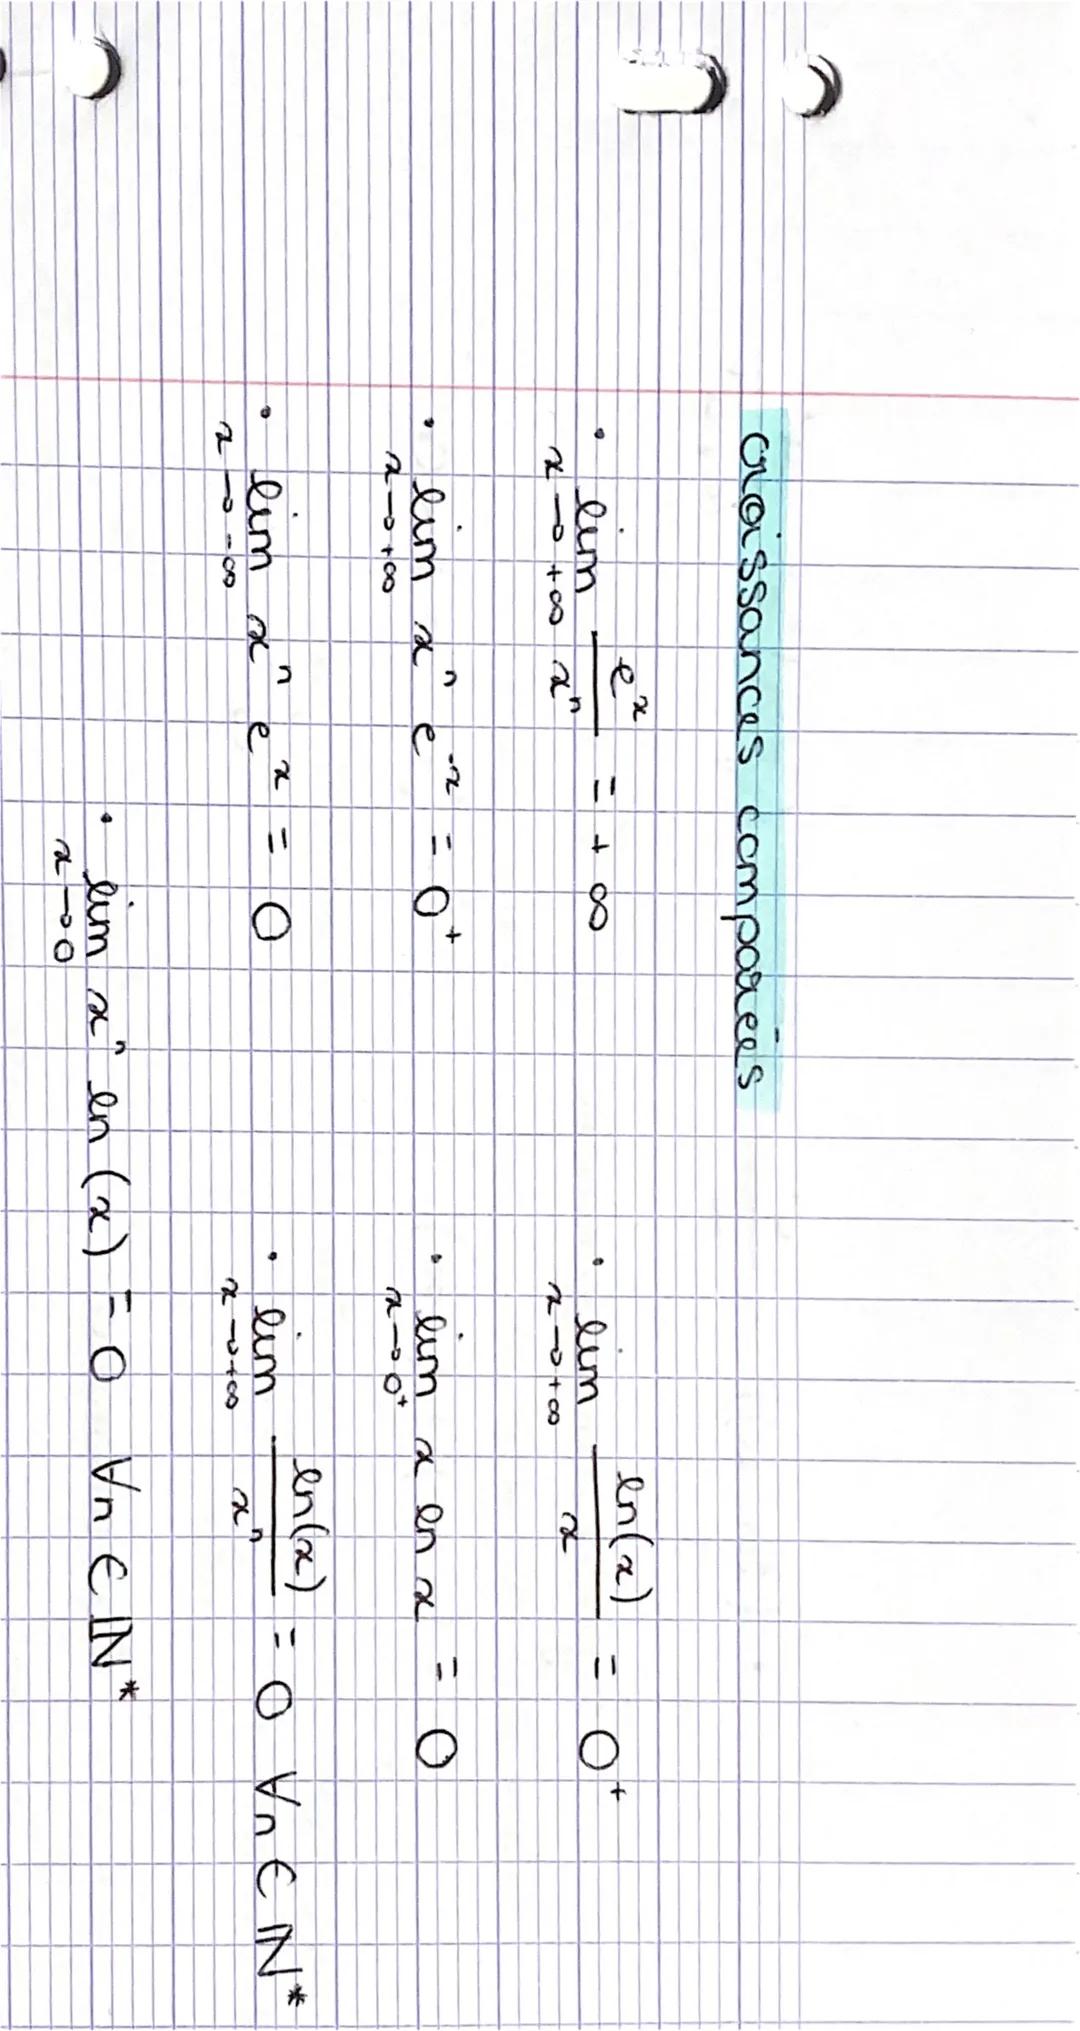 Croissances comparées
• lim x→+∞ e^x / x^n = +∞
• lim x→+∞ x^n e^-x = 0^+
• lim x→-∞ x^n e^x = 0
• lim x→+∞ ln(x) / x = 0^+
• lim x→0^+ x ln x = 0
• lim x→+∞ ln(x) / x^n = 0 ∀n ∈ ℕ*
• lim x→0 x^n ln(x) = 0 ∀n ∈ ℕ*